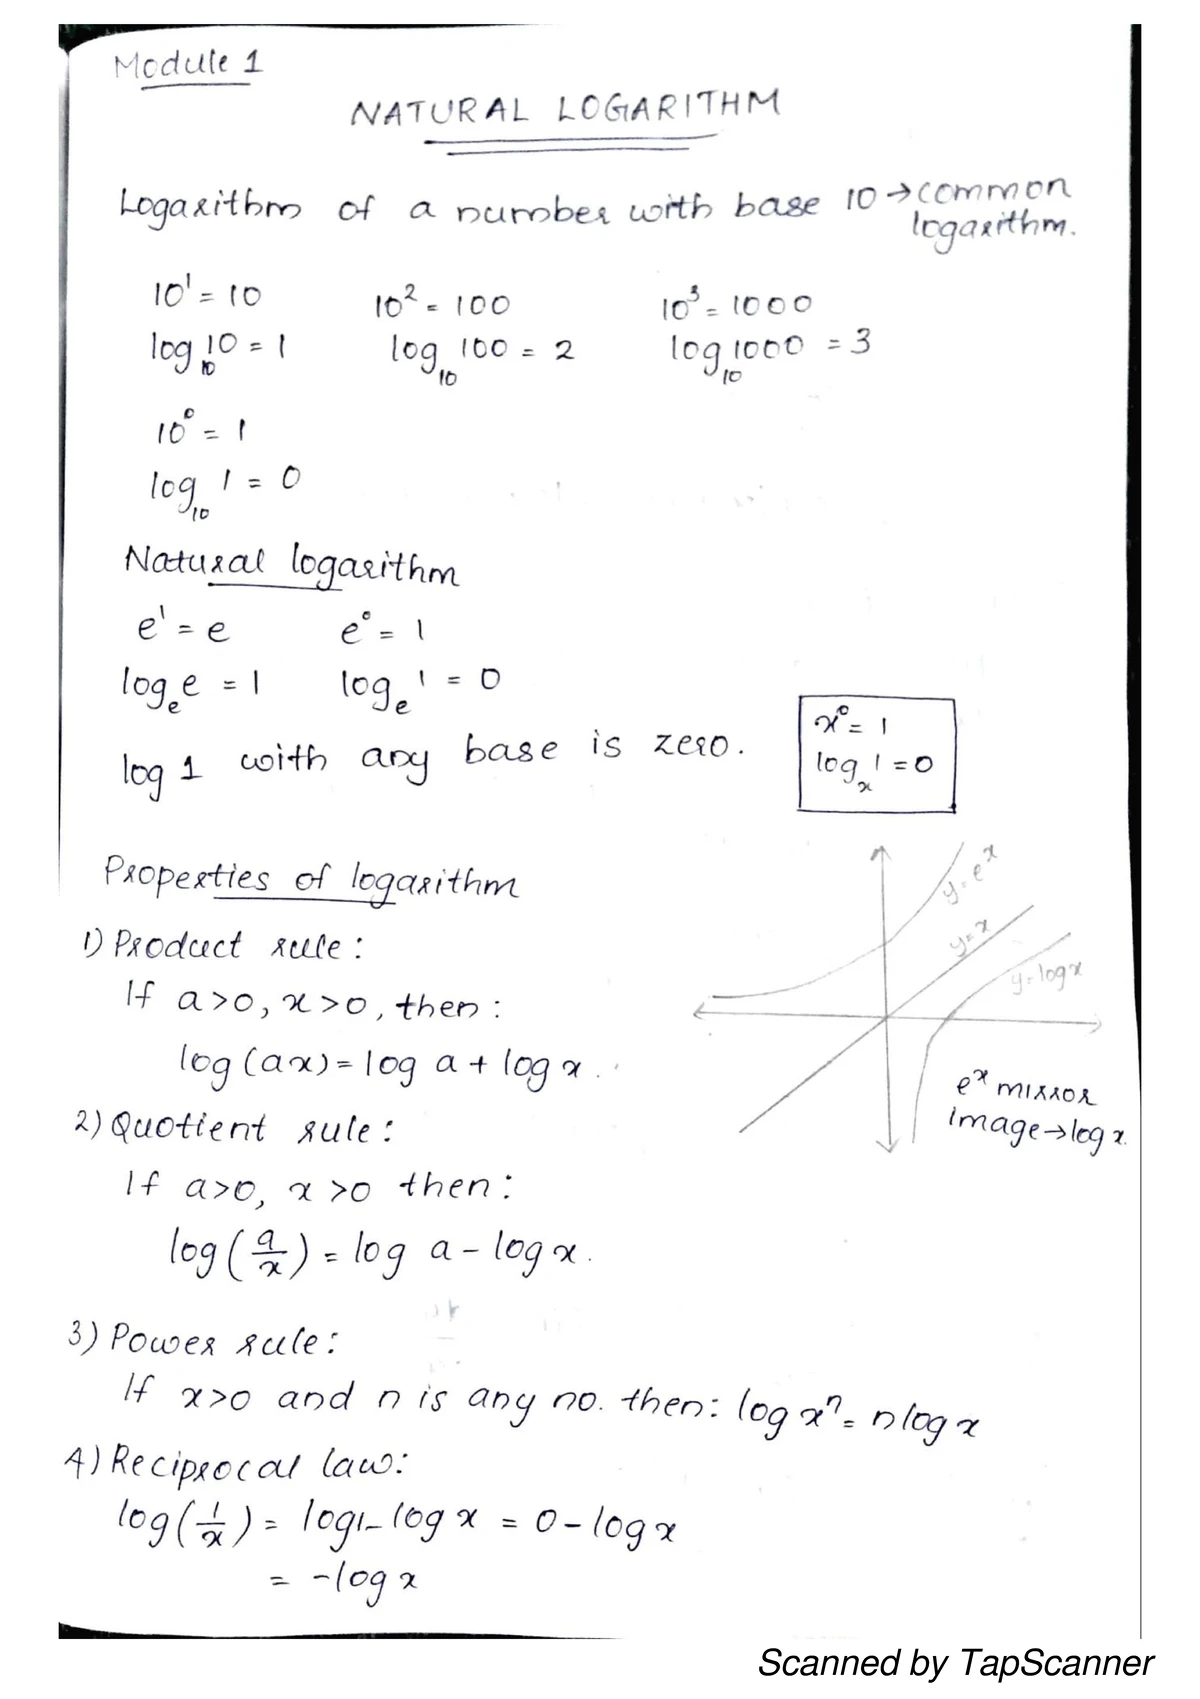 Module 1
NATURAL LOGARITHM
Logarithm of a number with base 10 → common
logarithm.
10¹ = 10 10² = 100 10³ = 1000
log₁₀ 10 = 1 log₁₀ 100 = 2 log₁₀ 1000 = 3
10⁰ = 1
log₁₀ 1 = 0
Natural logarithm
e¹ = e e⁰ = 1
logₑ e = 1 logₑ 1 = 0
log 1 with any base is zero.
x⁰ = 1
logₓ 1 = 0
Properties of logarithm
1) Product rule:
If a>0, x>0, then:
log (ax) = log a + log x.
y = eˣ
y = x
y = log x
eˣ mirror
image → log x.
2) Quotient rule:
If a>0, x>0 then:
log (a/x) = log a - log x.
3) Power rule:
If x>0 and n is any no. then: log xⁿ = n log x
4) Reciprocal law:
log (1/x) = log 1 - log x = 0 - log x
= -log x
Scanned by TapScanner